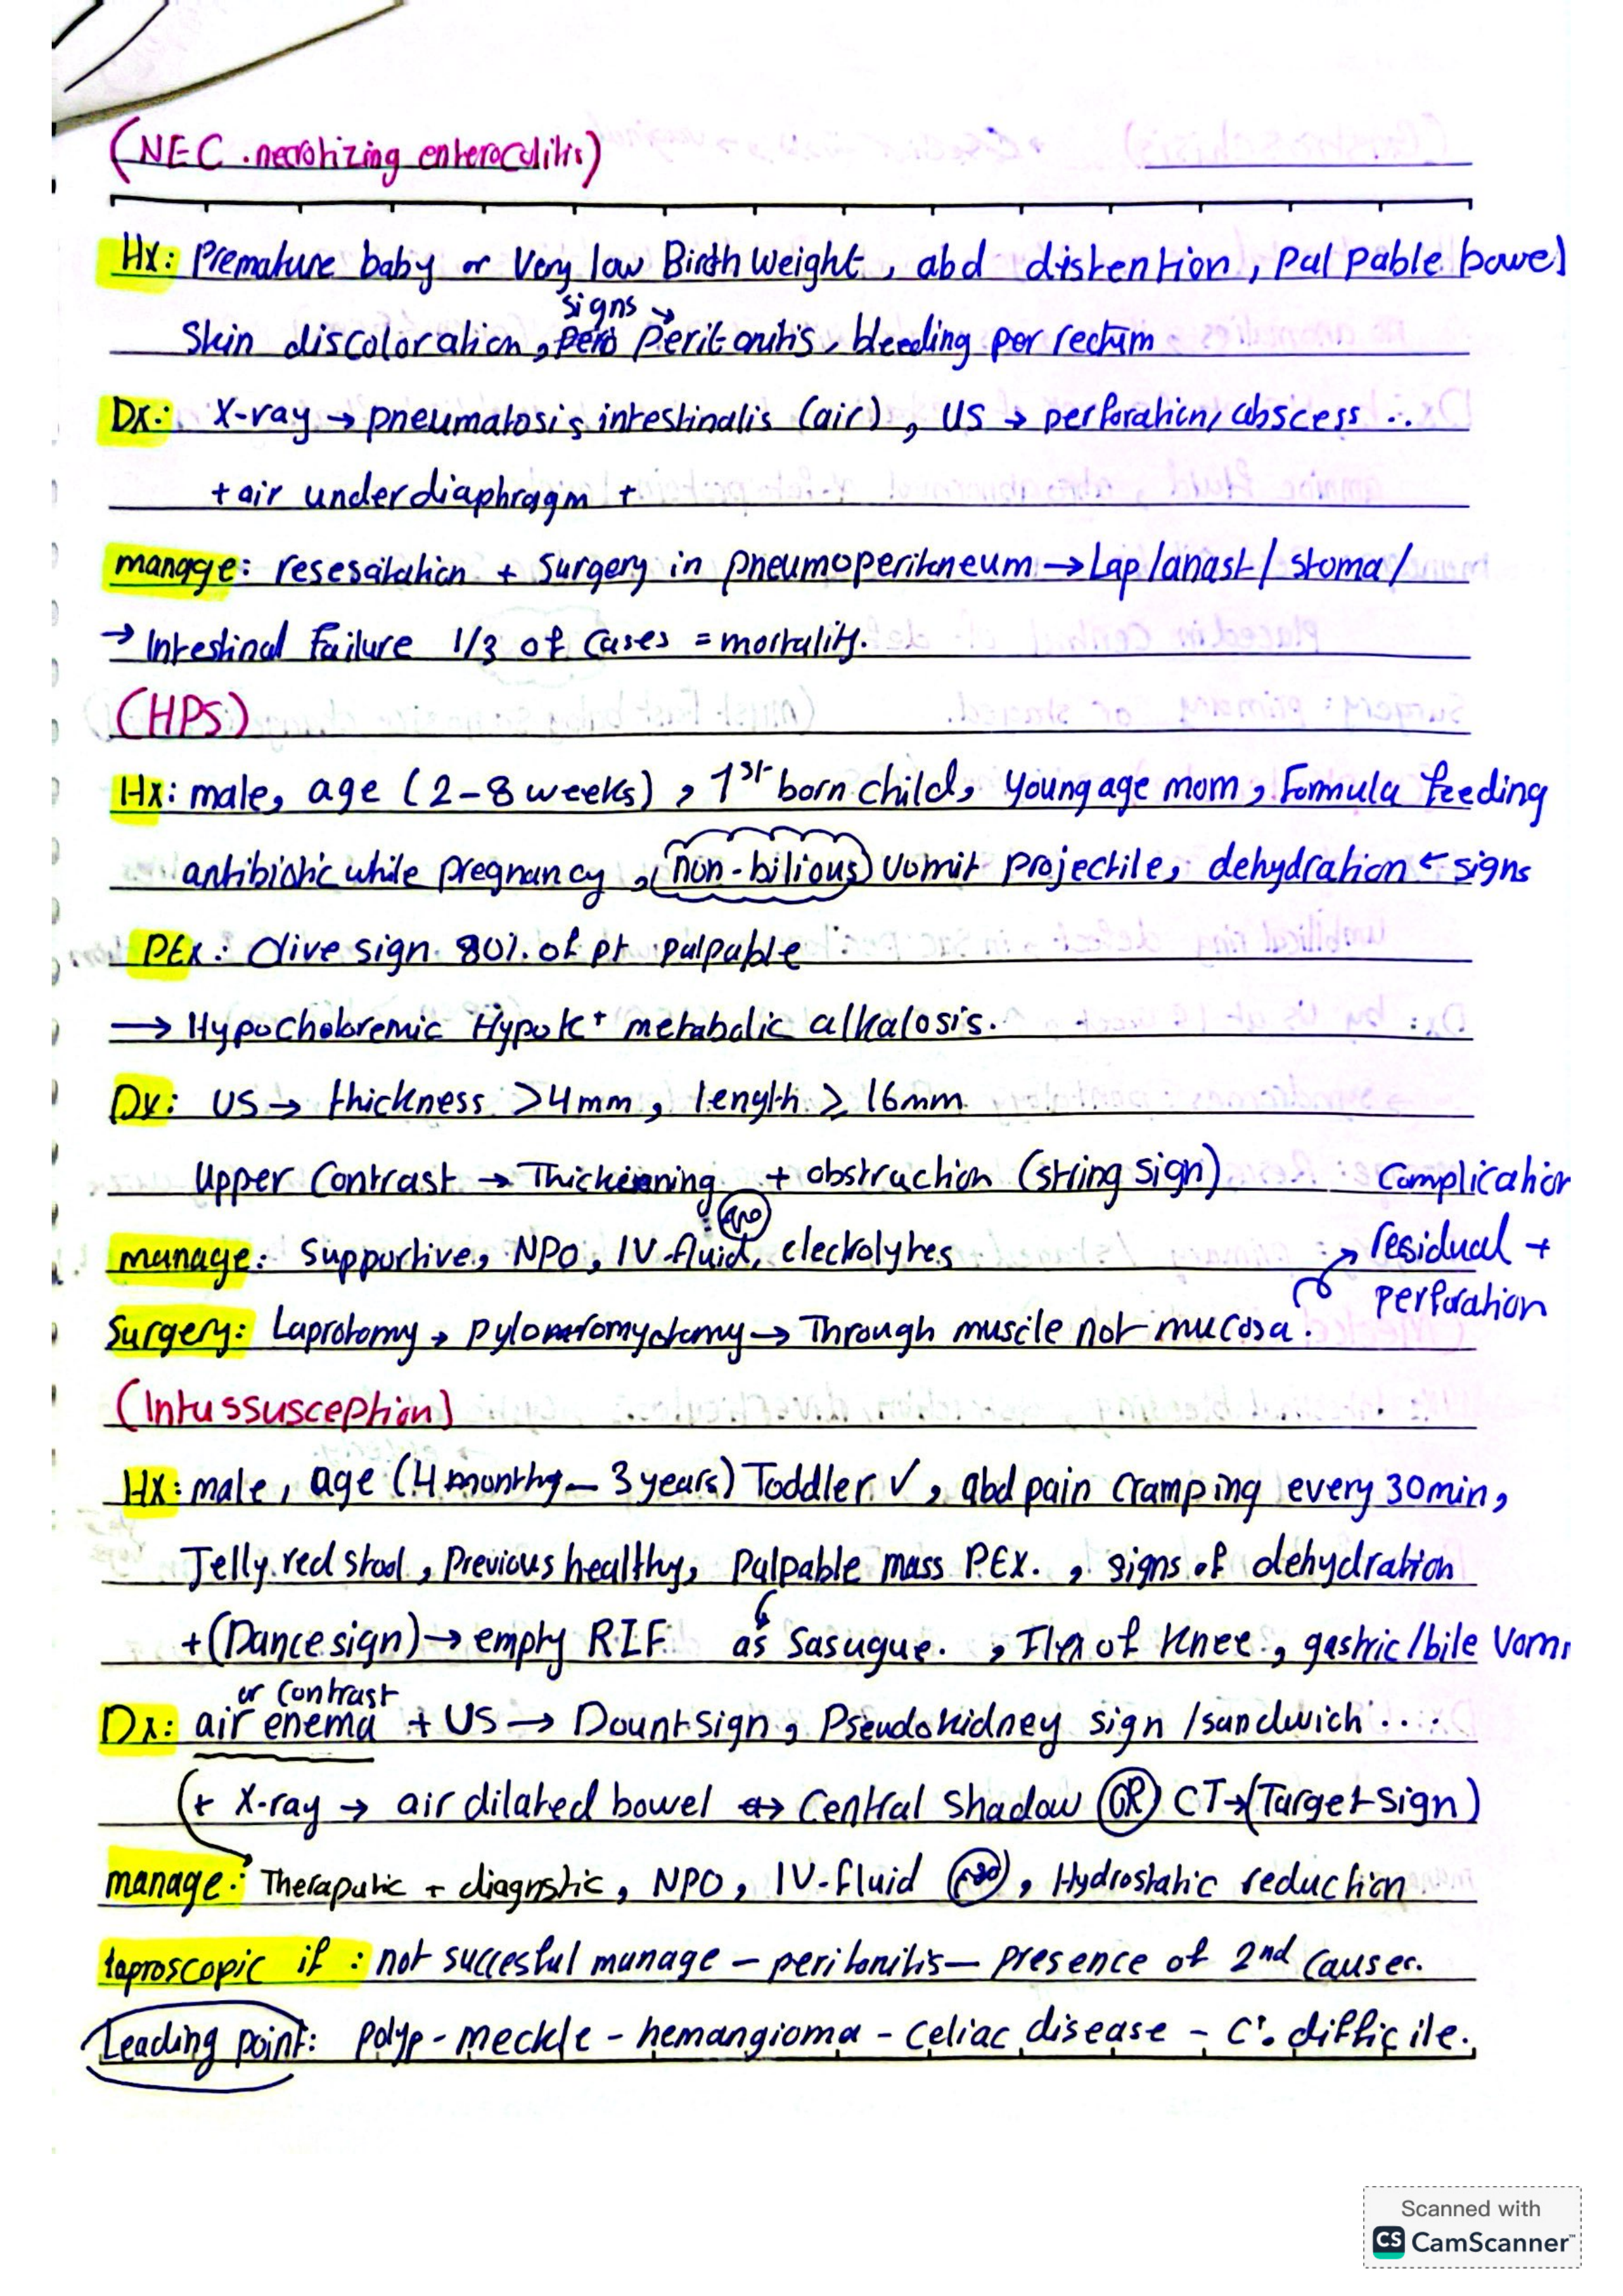 (NEC. necrotizing enterocolitis)
Hx: Premature baby or Very low Birth Weight, abd distention, palpable bowel
signs
Skin discoloration, Peritonitis, bleeding per rectum
Dx: X-ray → pneumatosis intestinalis (air), US → perforation/abscess ..
+ air under diaphragm +
manage: resesaitation + Surgery in pneumoperitoneum → Lap/anast/stoma/
→ Intestinal Failure 1/3 of Cases = mortality.
(HPS)
Hx: male, age (2-8 weeks), 1st born child, young age mom, Formula feeding
antibiotic while pregnancy, (non-bilious) vomit projectile, dehydration ← signs
PEx: Olive sign 80% of pt palpable
→ Hypocholoremic Hypo K+ metabolic alkalosis.
Dx: US → thickness >4mm, length ≥ 16mm
Upper Contrast → Thickenning + obstruction (string sign)
Complication
manage: Supportive, NPO, IV-fluid, electrolytes
→ residual +
perforation
Surgery: Laprotomy → pyloromyotomy → Through muscle not mucosa.
(Intussusception)
Hx: male, age (4 months - 3 years) Toddler ✓, abd pain cramping every 30min,
Jelly red stool, previous healthy, palpable mass PEX., signs of dehydration
+ (Dance sign) → empty RIF as Sasugue., Flex of Knee., gastric/bile Vomi
or contrast
Dx: air enema + US → Dount sign, Pseudokidney sign /sandwich ...
(+ X-ray → air dilated bowel ↔ Central shadow OR CT → (Target sign)
manage: Theraputic + diagnstic, NPO, IV-fluid, Hydrostatic reduction
laproscopic if: not succesful manage - peritonitis - presence of 2nd causes.
Leading point: polyp - meckle - hemangioma - celiac disease - C. difficile.
Scanned with
CS CamScanner™